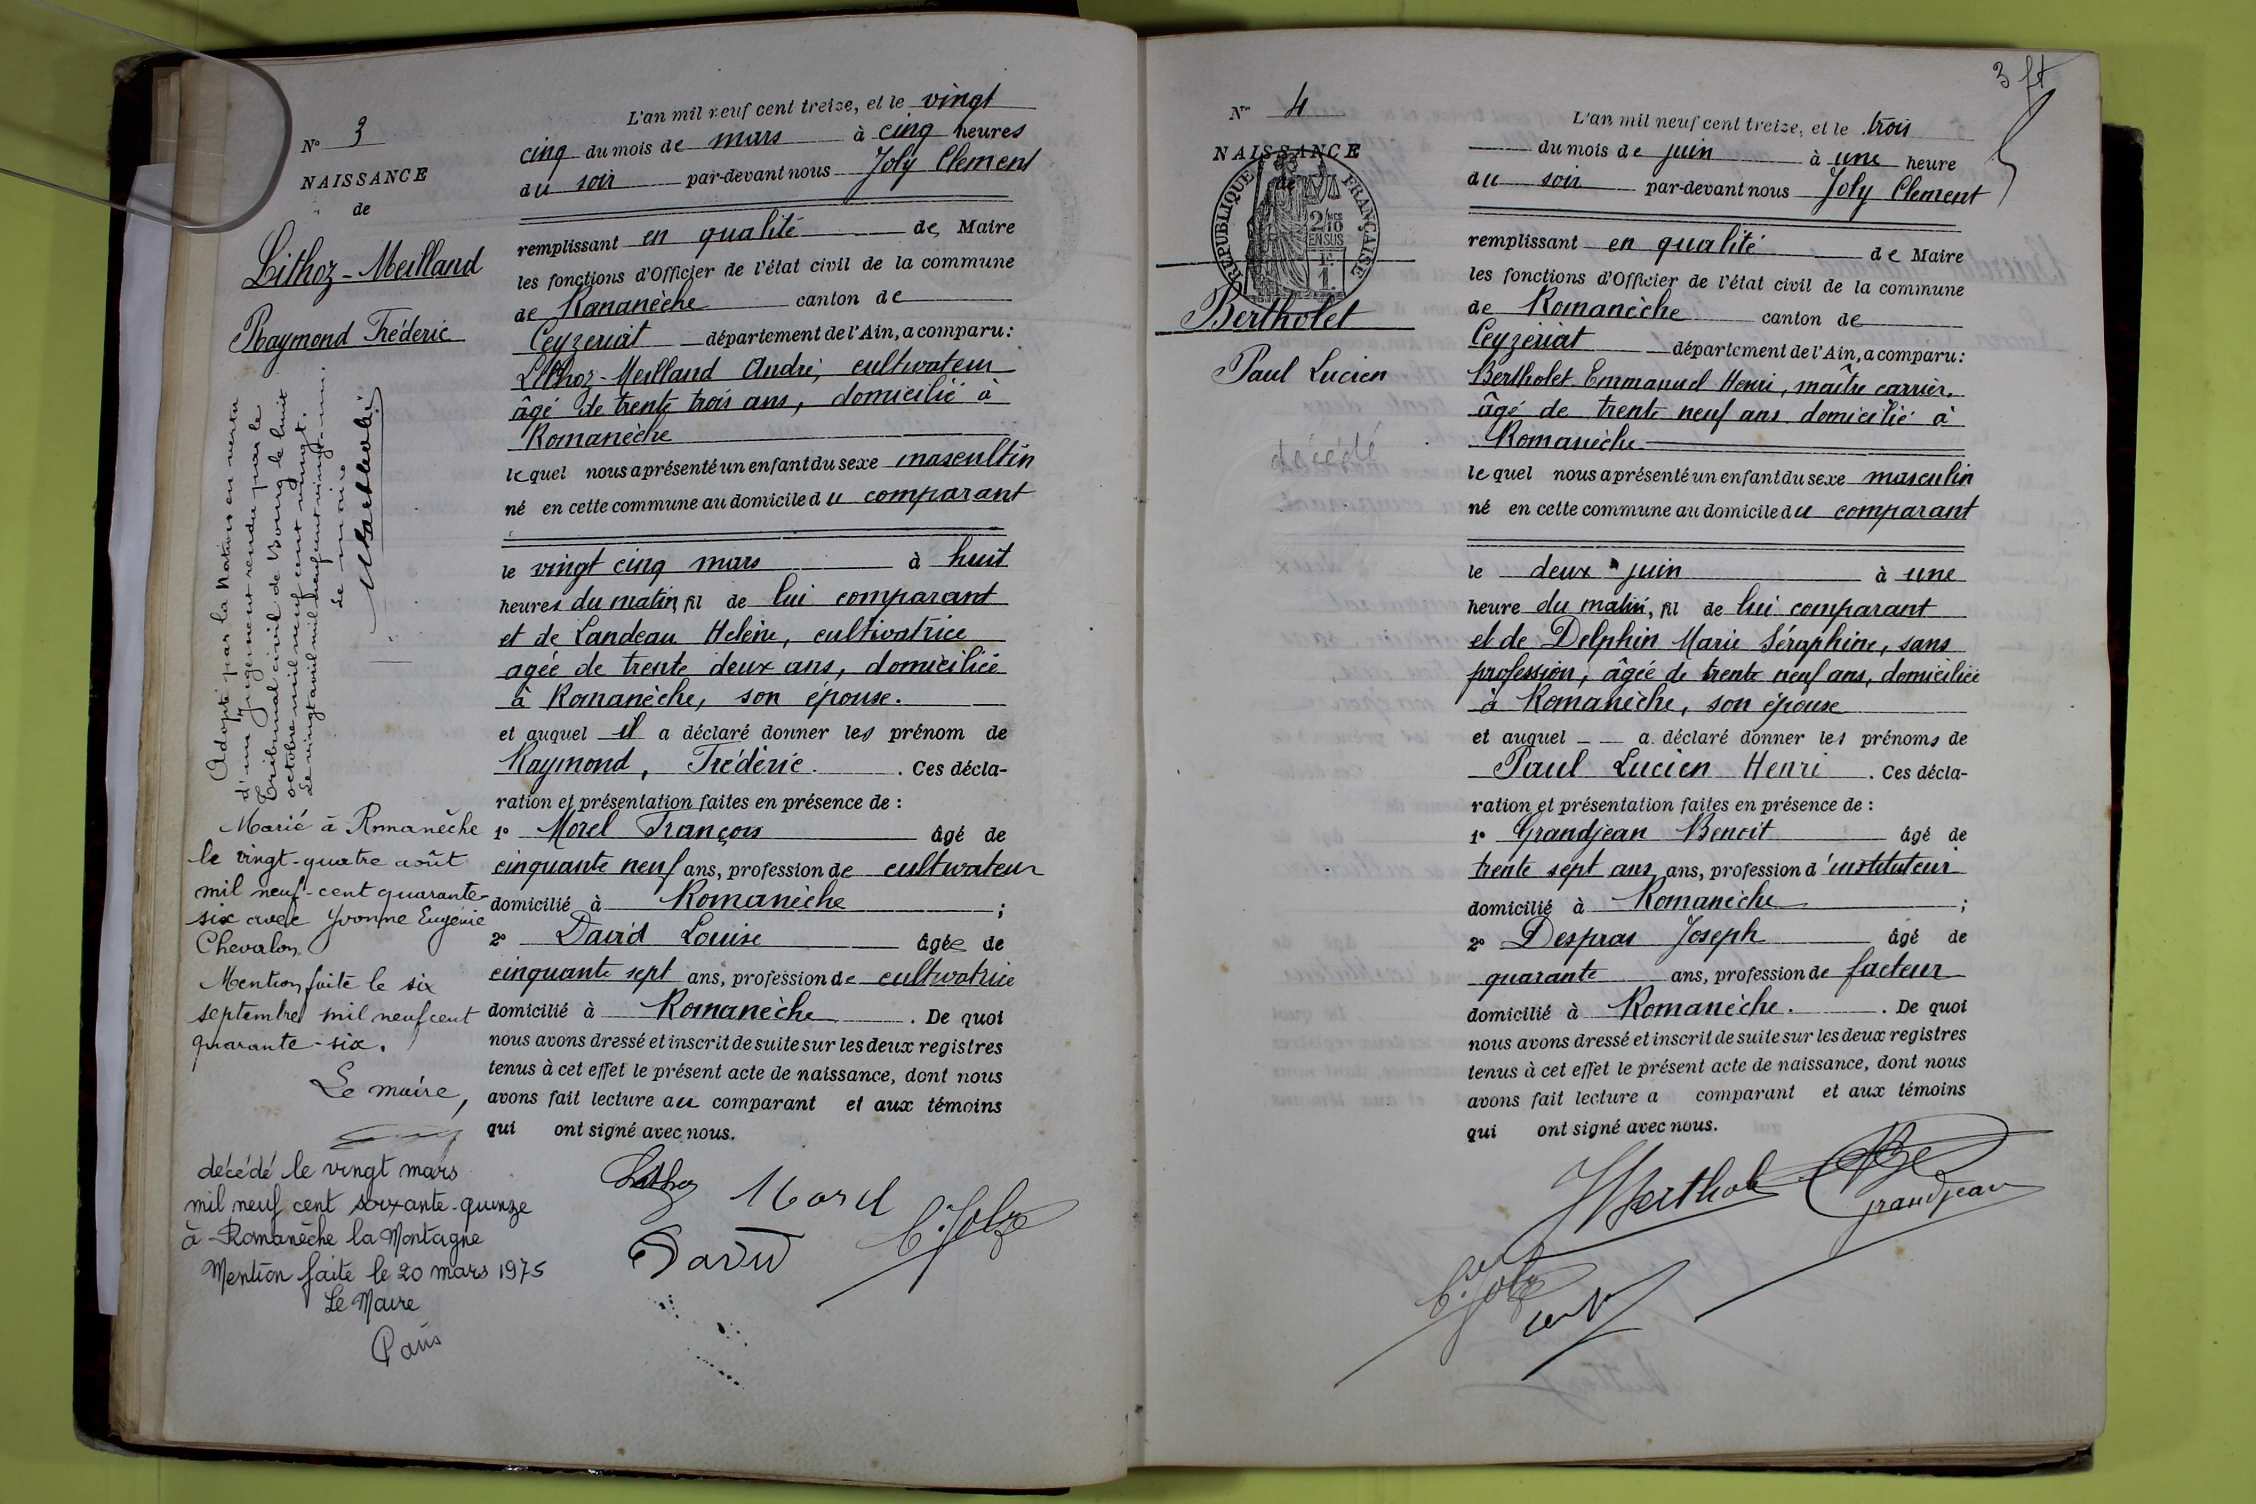 N° 3
NAISSANCE
de
Lithoz-Meilland
Raymond Fréderic
Adopté par la Nation en vertu
d'un jugement rendu par le
Tribunal civil de Bourg le huit
octobre mil neuf cent vingt.
Le vingt avril mil neuf cent vingt un.
Le maire
Marié à Romanèche
le vingt-quatre août
mil neuf-cent quarante-
six avec Yvonne Eugénie
Chevalon
Mention faite le six
septembre mil neuf cent
quarante-six.
Le maire,
décédé le vingt mars
mil neuf cent soixante-quinze
à Romanèche la Montagne
Mention faite le 20 mars 1975
Le Maire
L'an mil neuf cent treize, et le vingt
cinq du mois de mars à cinq heures
du soir par-devant nous Joly Clement
remplissant en qualité de Maire
les fonctions d'Officier de l'état civil de la commune
de Romanèche canton de
Ceyzeriat département de l'Ain, a comparu:
Lithoz-Meilland André, cultivateur
âgé de trente trois ans, domicilié à
Romanèche
lequel nous a présenté un enfant du sexe masculin
né en cette commune au domicile du comparant
le vingt cinq mars à huit
heures du matin, fil de lui comparant
et de Landeau Helène, cultivatrice
agée de trente deux ans, domiciliée
à Romanèche, son épouse.
et auquel il a déclaré donner les prénom de
Raymond, Fréderic. Ces décla-
ration et présentation faites en présence de :
1° Morel François âgé de
cinquante neuf ans, profession de cultivateur
domicilié à Romanèche ;
2° David Louise âgée de
cinquante sept ans, profession de cultivatrice
domicilié à Romanèche. De quoi
nous avons dressé et inscrit de suite sur les deux registres
tenus à cet effet le présent acte de naissance, dont nous
avons fait lecture au comparant et aux témoins
qui ont signé avec nous.
Lithoz Morel
David C. Joly
3 ft
N° 4
NAISSANCE
de
RÉPUBLIQUE FRANÇAISE
2/10
EN SUS
1F.
Bertholet
Paul Lucien
décédé
L'an mil neuf cent treize, et le trois
du mois de juin à une heure
du soir par-devant nous Joly Clement
remplissant en qualité de Maire
les fonctions d'Officier de l'état civil de la commune
de Romanèche canton de
Ceyzériat département de l'Ain, a comparu:
Bertholet Emmanuel Henri, maître carrier,
âgé de trente neuf ans domicilié à
Romanèche
lequel nous a présenté un enfant du sexe masculin
né en cette commune au domicile du comparant
le deux juin à une
heure du matin, fil de lui comparant
et de Delphin Marie Séraphine, sans
profession, âgée de trente neuf ans, domiciliée
à Romanèche, son épouse
et auquel a déclaré donner les prénoms de
Paul Lucien Henri. Ces décla-
ration et présentation faites en présence de :
1° Grandjean Benoit âgé de
trente sept ans ans, profession d'instituteur
domicilié à Romanèche ;
2° Despras Joseph âgé de
quarante ans, profession de facteur
domicilié à Romanèche. De quoi
nous avons dressé et inscrit de suite sur les deux registres
tenus à cet effet le présent acte de naissance, dont nous
avons fait lecture a comparant et aux témoins
qui ont signé avec nous.
Grandjean
C. Joly